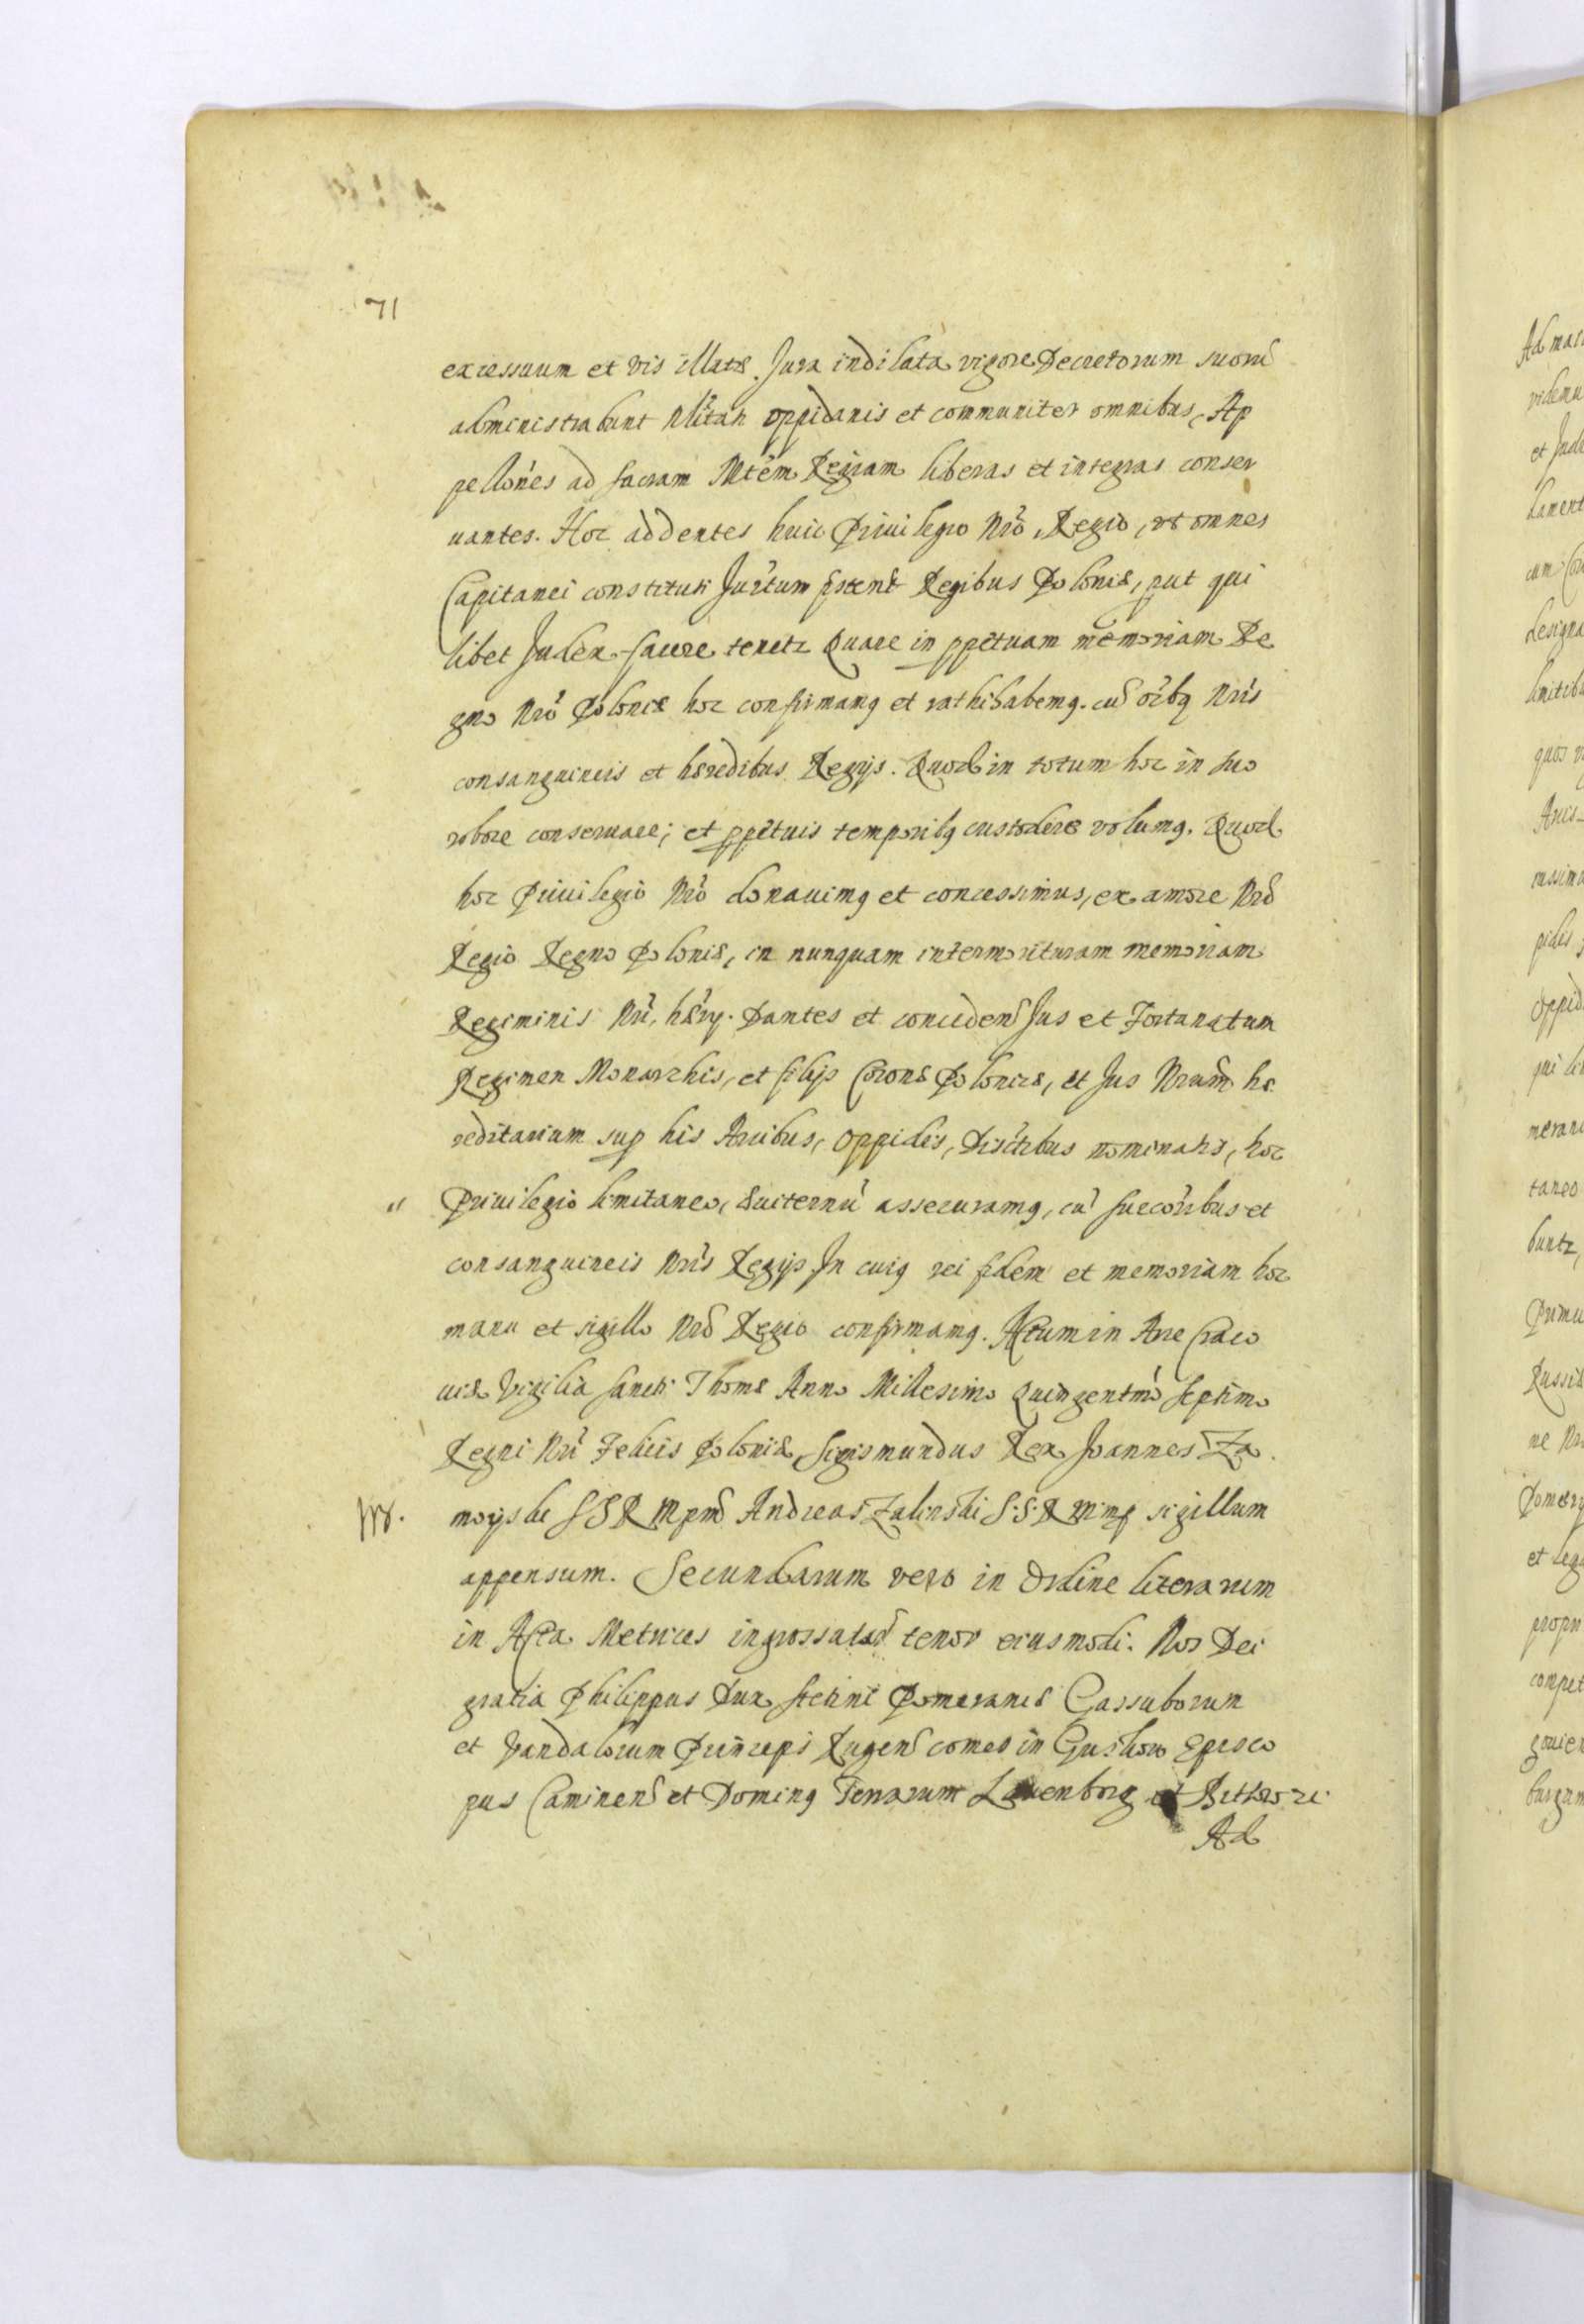 71
excessuum et vis illatæ. Jura indilata vigore Decretorum suorũ
administrabunt Nlitati oppidanis et communiter omnibus, Ap
pellões ad Sacram Mtem Regiam liberas et integras conser
uantes. Hoc addentes huic Priuilegio Nrõ Regio, vt omnes
Capitanei constituti Jurtum præent Regibus Poloniæ, put qui
libet Judex facere tenetr Quare in ppetuam memoriam Re
gno Nrõ Poloniæ hoc confirmamq et rathihabemq. cũ oĩbq Nrĩs
consanguineis et hæredibus Regijs. Quod in totum hoc in suo
robore conseruare; et ppetuis temporibq custodire volumq. Quod
hoc Priuilegiõ Nrõ donauimq et concessimus, ex amore Nrõ
Regio Regno Poloniæ, in nunquam intermorituram memoriam
Regiminis Nrĩ, hæry. Dantes et conceden Jus et Fortunatum
Regimen Monarchis, et filijs Coronæ Poloniæ, et Jus Nrum hæ
reditarium sup his Arcibus, Oppidis, Distribus nominatis, hoc
" Priuilegio limitaneo, æuiternũ assecuramq, cũ Succõribus et
consanguineis Nrĩs Regijs In cuiq rei fidem et memoriam hoc
manu et sigillo Nrõ Regio confirmamq. Actum in Arce Craco
uiæ Vigilia Sancti Thomæ Anno Millesimo Quingentmo Septimo
Regni Nrĩ Felicis Poloniæ Sigismundus Rex Joannes Za
moyski S S R M pm Andreas Zalinski S. S. R M mp sigillum
appensum. Secundarum vero in Ordine literarum
in Acta Metrices ingrossatar tenor eiusmodi. Nos Dei
gratia Philippus Dux Stetini Pomeraniæ Cassuborum
et Vandalorum Princeps Rugen comes in Guskow Episco
pus Caminen et Dominq Terrarum Lauenborg et Buthow
Ad